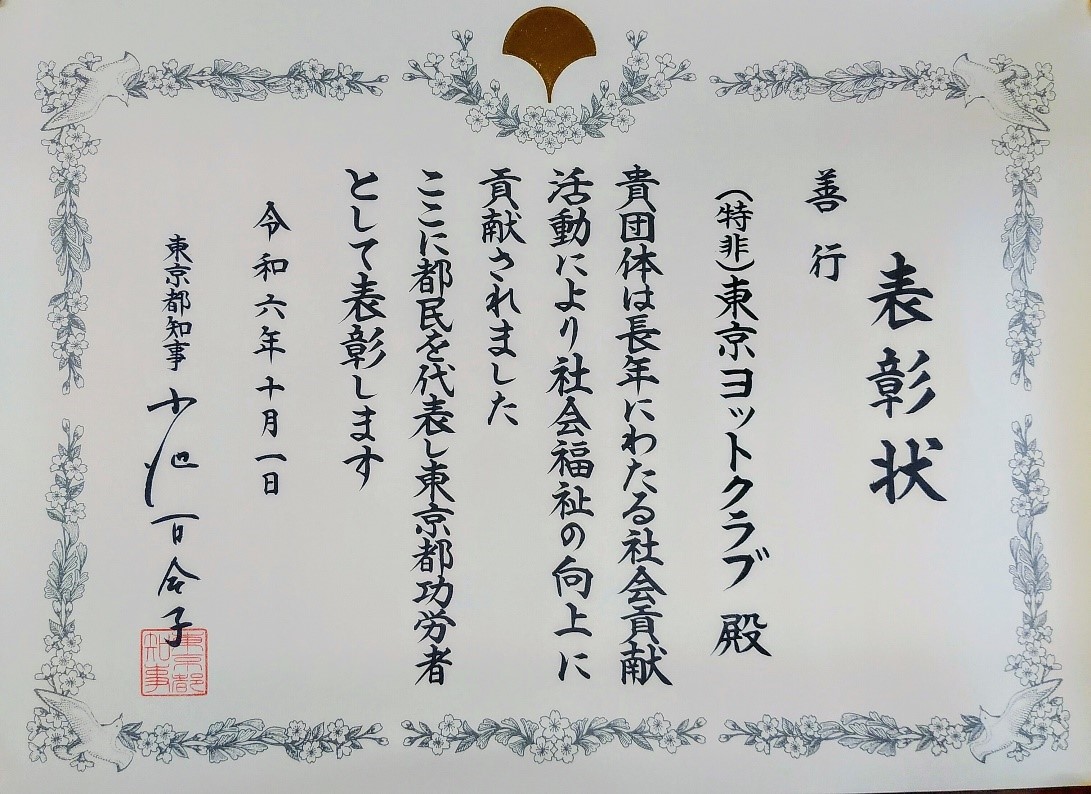 表彰状
善行
(特非)東京ヨットクラブ 殿
貴団体は長年にわたる社会貢献
活動により社会福祉の向上に
貢献されました
ここに都民を代表し東京都功労者
として表彰します
令和六年十月一日
東京都知事 小池百合子
東京都
知事